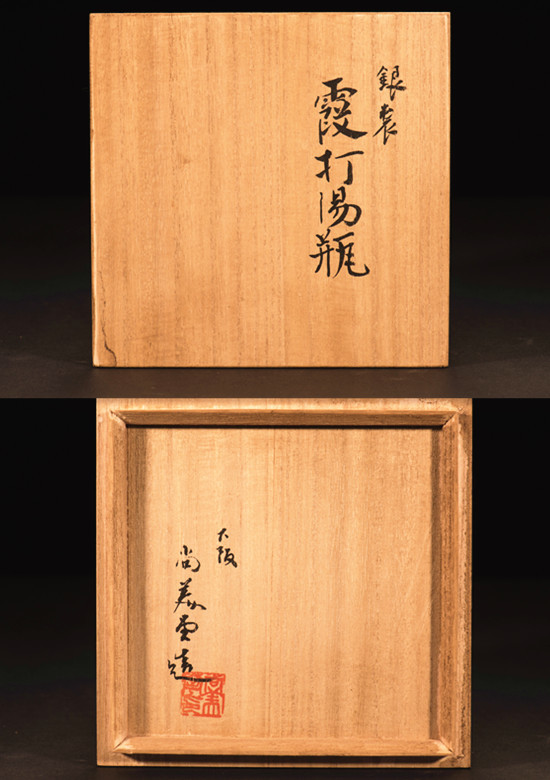 銀製
霞打湯瓶
大阪
尚美堂造